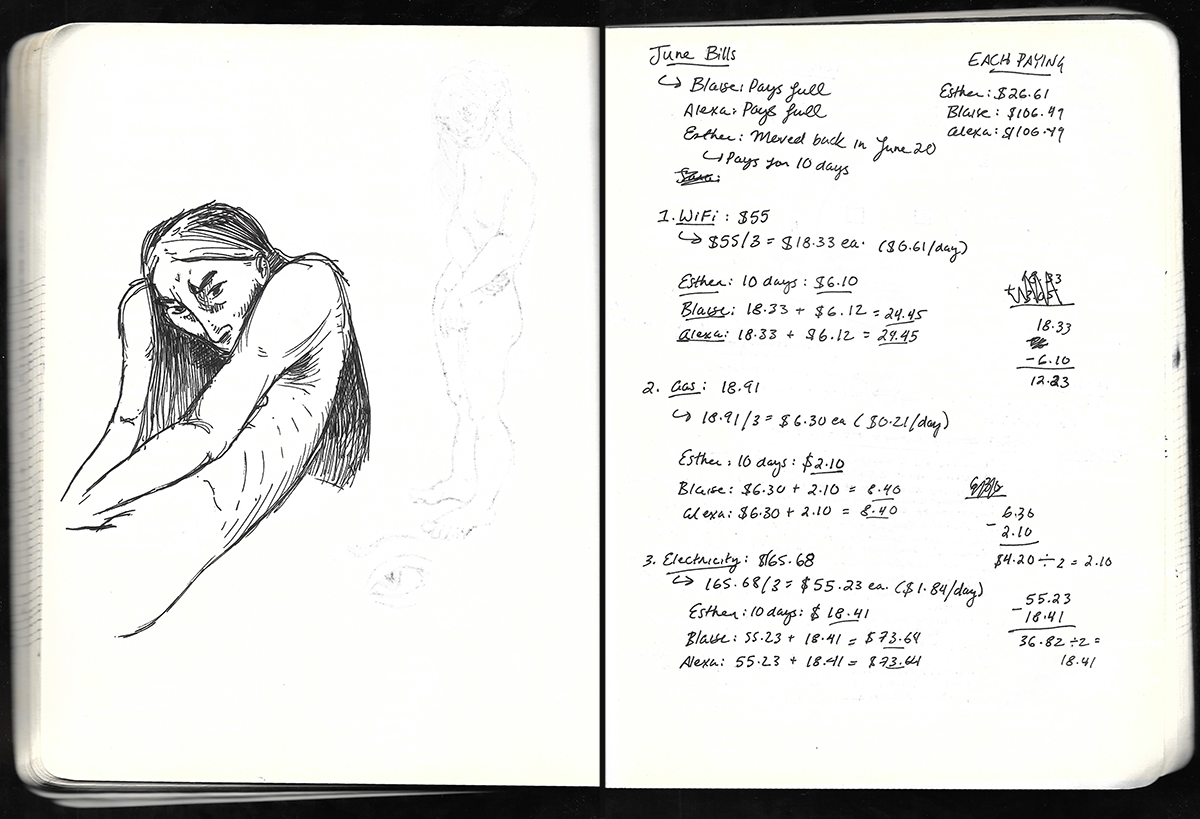 June Bills
↳ Blaise: Pays full
Alexa: Pays full
Esther: Moved back in June 20
↳ Pays for 10 days
EACH PAYING
Esther: $26.61
Blaise: $106.49
Alexa: $106.49
1. WiFi: $55
↳ $55/3 = $18.33 ea. ($0.61/day)
Esther: 10 days: $6.10
Blaise: 18.33 + $6.12 = 24.45
Alexa: 18.33 + $6.12 = 24.45
18.33
-6.10
12.23
2. Gas: 18.91
↳ 18.91/3 = $6.30 ea ($0.21/day)
Esther: 10 days: $2.10
Blaise: $6.30 + 2.10 = 8.40
Alexa: $6.30 + 2.10 = 8.40
6.30
- 2.10
$4.20 ÷ 2 = 2.10
3. Electricity: $165.68
↳ 165.68/3 = $55.23 ea. ($1.84/day)
Esther: 10 days: $18.41
Blaise: 55.23 + 18.41 = $73.64
Alexa: 55.23 + 18.41 = $73.64
55.23
- 18.41
36.82 ÷ 2 =
18.41